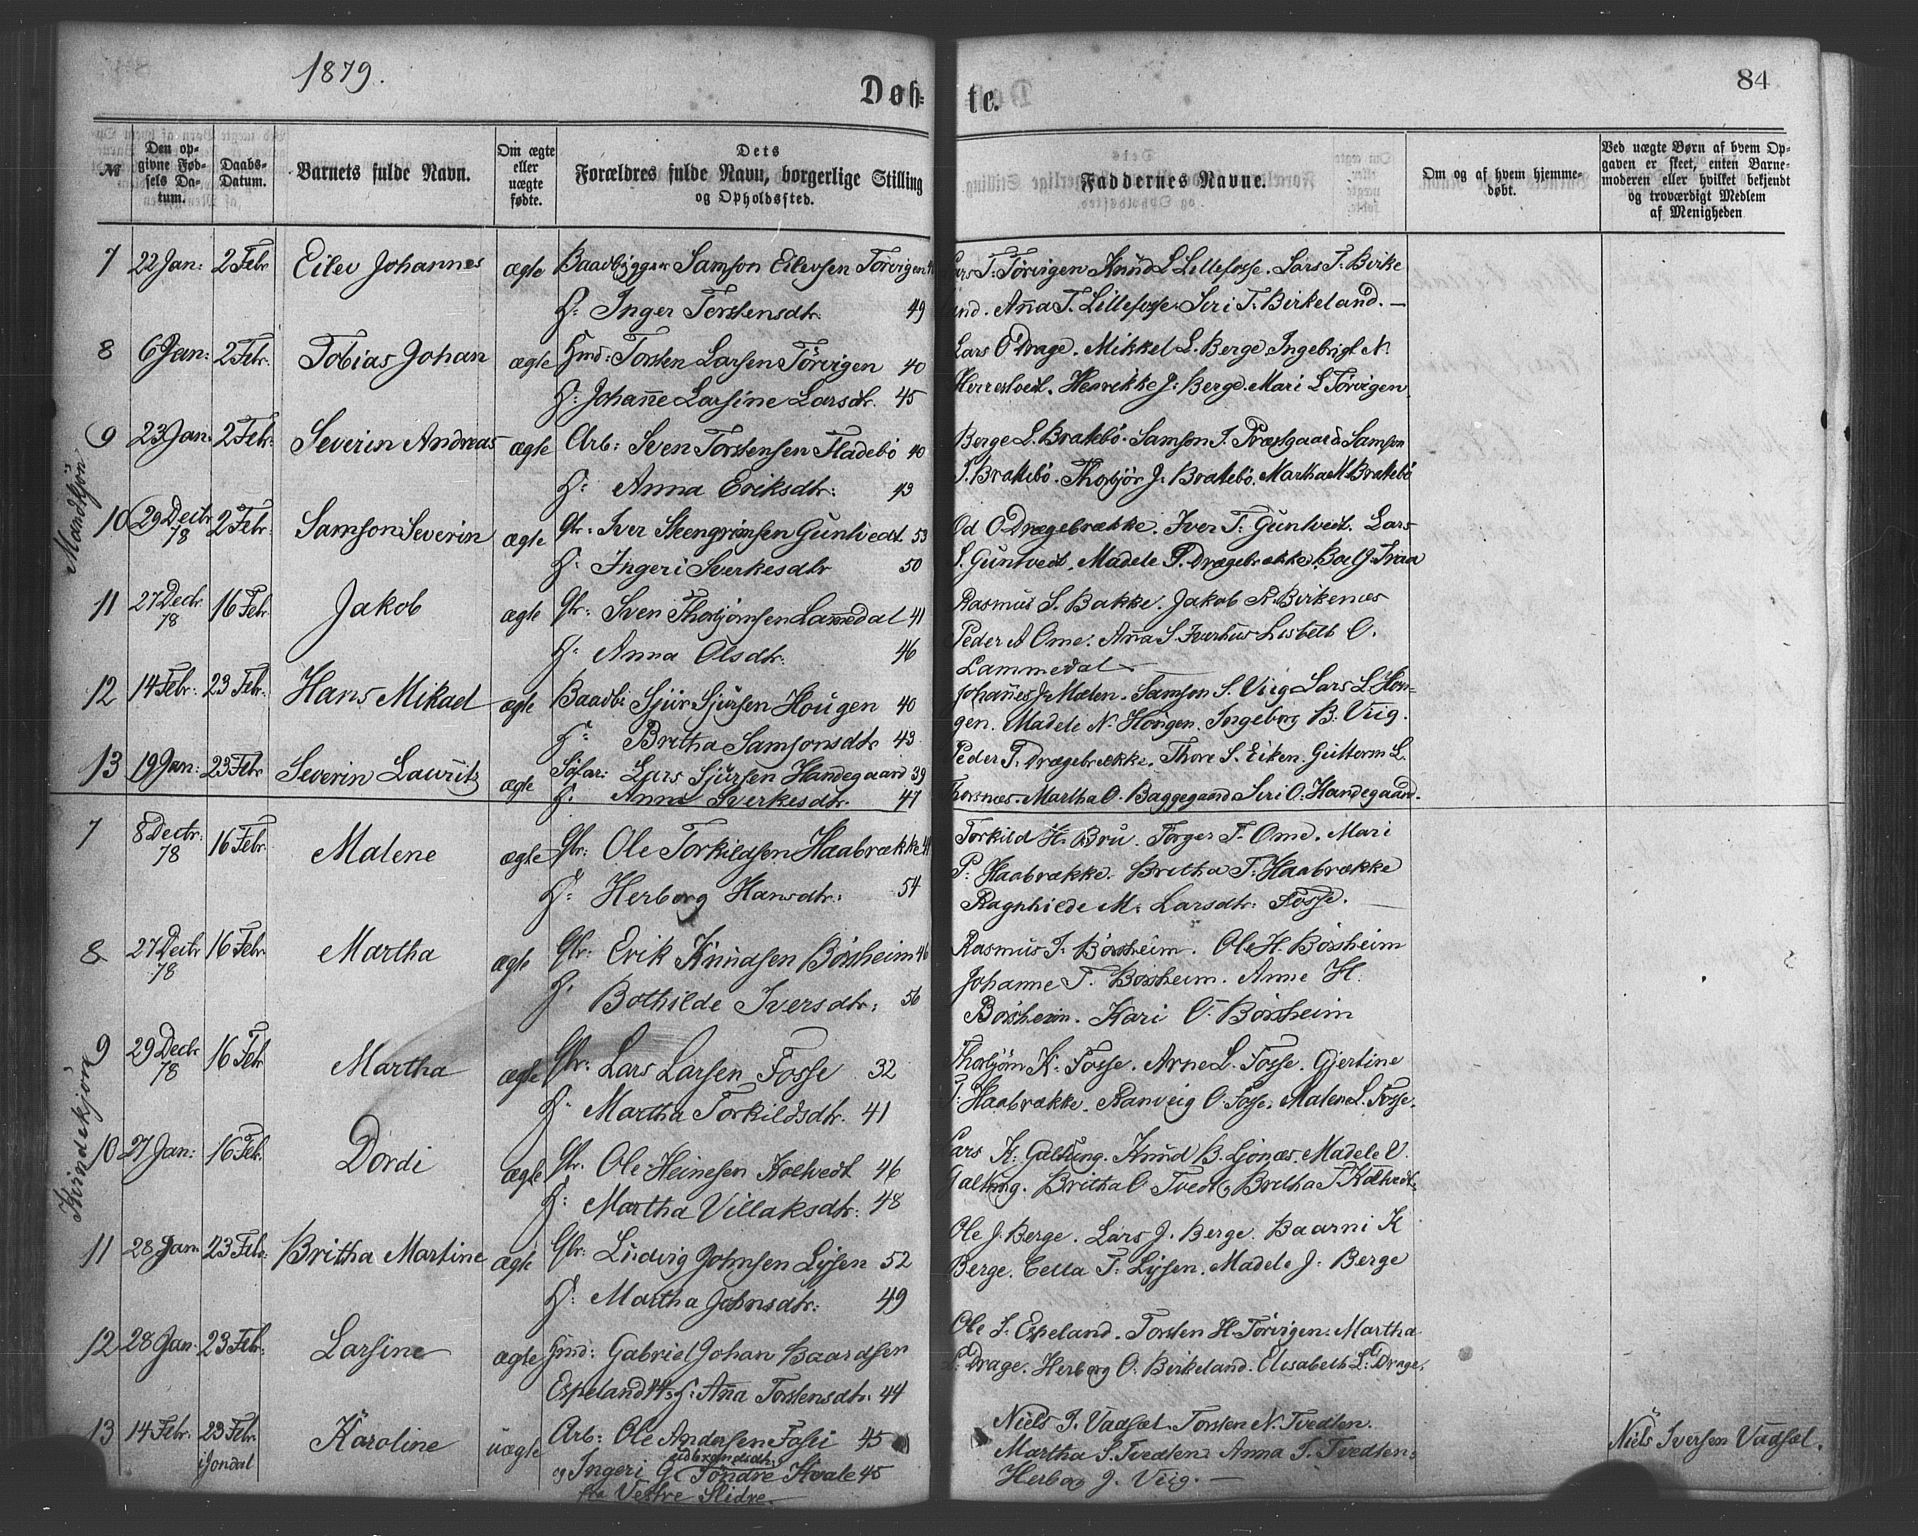 1879.
Døb-
te.
84
№
Den op-
givne Fød-
sels Da-
tum.
Daabs-
Datum.
Barnets fulde Navn.
Om ægte
eller
uægte
fødte.
Dets
Forældres fulde Navn, borgerlige Stilling
og Opholdssted.
Faddernes Navne.
Om og af hvem hjemme-
døbt.
Ved uægte Børn af hvem Op-
gaven er skeet, enten Barne-
moderen eller hvilket bekjendt
og troværdigt Medlem
af Menigheden
Mandkjøn
7 22 Jan: 2 Febr Eilev Johannes ægte Baadbygger Samson Eilevsen Törvigen Lars T: Törvigen Knud L Lillefosse. Lars T. Birke
H: Inger Torstensdtr. 49 land. Anna T. Lillefosse Siri T. Birkeland. —
8 6 Jan: 2 Febr. Tobias Johan ægte Hmd: Torsten Larsen Törvigen 40 Lars O Drage. Mikkel L. Berge Ingebrigt N.
H: Johanne Larsine Larsdtr. 45 Herrestveit. Henrikke J: Berge. Mari L Törvigen.
9 23 Jan: 2 Febr. Severin Andreas ægte Arb: Sven Torstensen Fladebö 40 Berge L. Bratebö. Samson I. Præstgaard Samson
H: Anna Eriksdtr: 43 I. Bratebö. Thorbjör J. Bratebö. Martha M Bratebö
10 29 Decbr 78 2 Febr. Samson Severin ægte Gbr: Iver Steengrimsen Guntvedt 53 Od O Drægebrække. Iver T: Guntvedt. Lars
H: Ingeri Sverkesdtr 50 S. Guntvedt. Madele P. Drægebrække.
11 27 Decbr 78 16 Febr. Jakob ægte Gbr: Sven Thorbjörnsen Lammedal 41 Rasmus S. Bakke. Jakob A. Birkenes
H: Anna Olsdtr. 46 Peder A Ome. Anna S. Lisbeth O.
Lammedal —
12 14 Febr: 23 Febr. Hans Mikael ægte Baadb: Sjur Sjursen Hougen 40 Johannes J. Mælen. Samson S. Viig Lars L. Hou-
H: Britha Samsonsdtr 43 gen. Madele N. Hougen. Ingeborg B. Viig.
13 19 Jan: 23 Febr Severin Lauritz ægte Söfar: Lars Sjursen Handegaard 39 Peder P. Drægebrække. Thore S. Eiken. Guttorm L.
H: Anna Sverkesdtr. 47 Thorsnæs. Martha O. Baggegaard Siri O. Handegaard.
Kvindekjøn
7 8 Decbr: 78 16 Febr. Malene ægte Gbr: Ole Torkildsen Haabrække Torkild H. Bru. Torger T. Ome. Mari
H: Herborg Hansdtr: 54 P: Haabrække. Britha T. Haabrække
Ragnhilde M. Larsdtr: Fosse. —
8 27 Decbr 78 16 Febr. Martha ægte Gbr: Erik Knudsen Börsheim 46 Rasmus I. Börsheim. Ole H. Börsheim
H. Bothilde Iversdtr: 56 Johanne T. Borsheim. Anne H.
Börsheim. Kari O. Börsheim
9 29 Decbr 78 16 Febr Martha ægte Gbr: Lars Larsen Fosse 32 Thorbjörn K. Fosse. Arne L. Fosse. Gjertine
H. Martha Torkildsdtr. 41 T. Haabrække. Ranveig O. Fosse. Malene L. Fosse.
10 27 Jan: 16 Febr. Dordi ægte Gbr. Ole Heinesen Koltvedt 46 Lars K: Galtung. Knud B. Ljonæs. Madele V.
H: Martha Villaksdtr: 48 Galtung. Britha O. Tvedt, Britha T Koltvedt.
11 28 Jan 23 Febr. Britha Martine ægte Gbr: Ludvig Johnsen Lyssen 52 Ole J. Berge. Lars J. Berge. Baarni K
H: Martha Johnsdtr: 49 Berge. Cella T. Lyssen. Madele J: Berge
12 28 Jan. 23 Febr. Larsine ægte Hmd: Gabriel Johan Baardsen Ole S. Espeland. Torsten H. Törvigen. Martha
Espeland 44. H: Anna Torstensdtr: 44 L: Drage. Herborg O. Birkeland. Elisabeth L: Drage.
13 14 Febr. 23 Febr. i Jondal Karoline uægte Arb: Ole Andersen Fosei 45 Niels I. Vadsel. Torsten N. Tvedten. Niels Iversen Vadsel.
og Ingeri Gudbrandsdtr Töndre Kvale 45 Martha S. Tvedten. Anna T. Tvedten.
fra Vestre Slidre. Herborg J. Viig. —